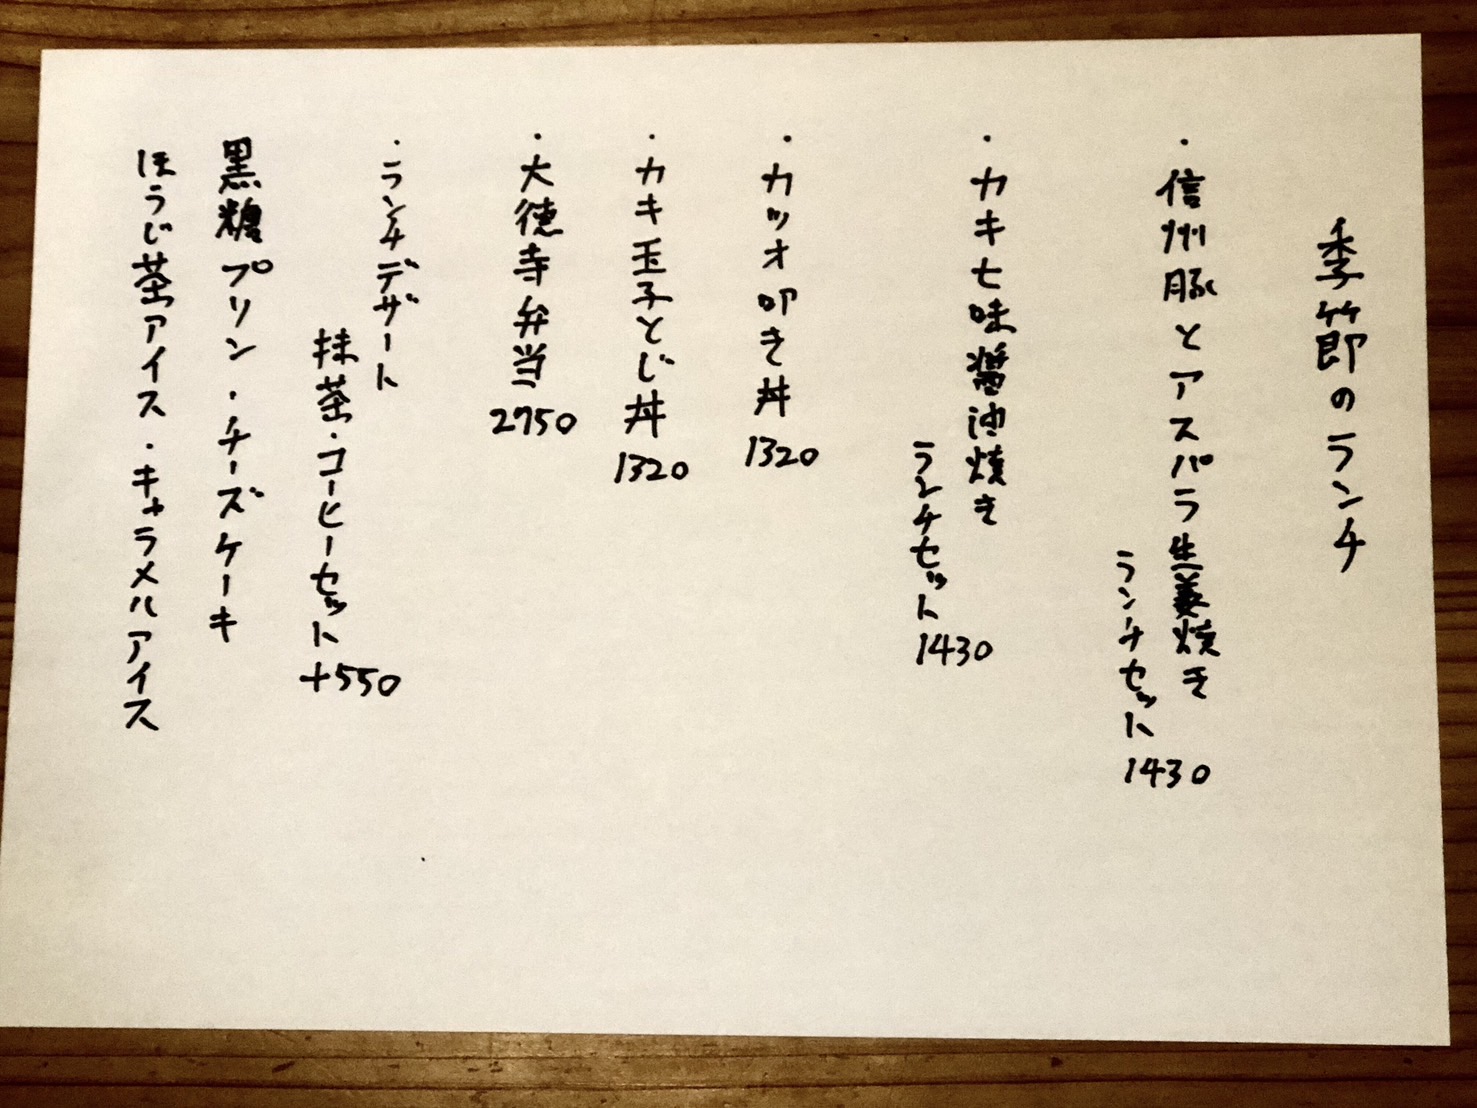 季節のランチ
・信州豚とアスパラ生姜焼き
ランチセット 1430
・カキ七味醤油焼き
ランチセット 1430
・カツオ叩き丼 1320
・カキ玉子とじ丼 1320
・大徳寺弁当 2750
・ランチデザート
抹茶・コーヒーセット +550
黒糖プリン・チーズケーキ
ほうじ茶アイス・キャラメルアイス